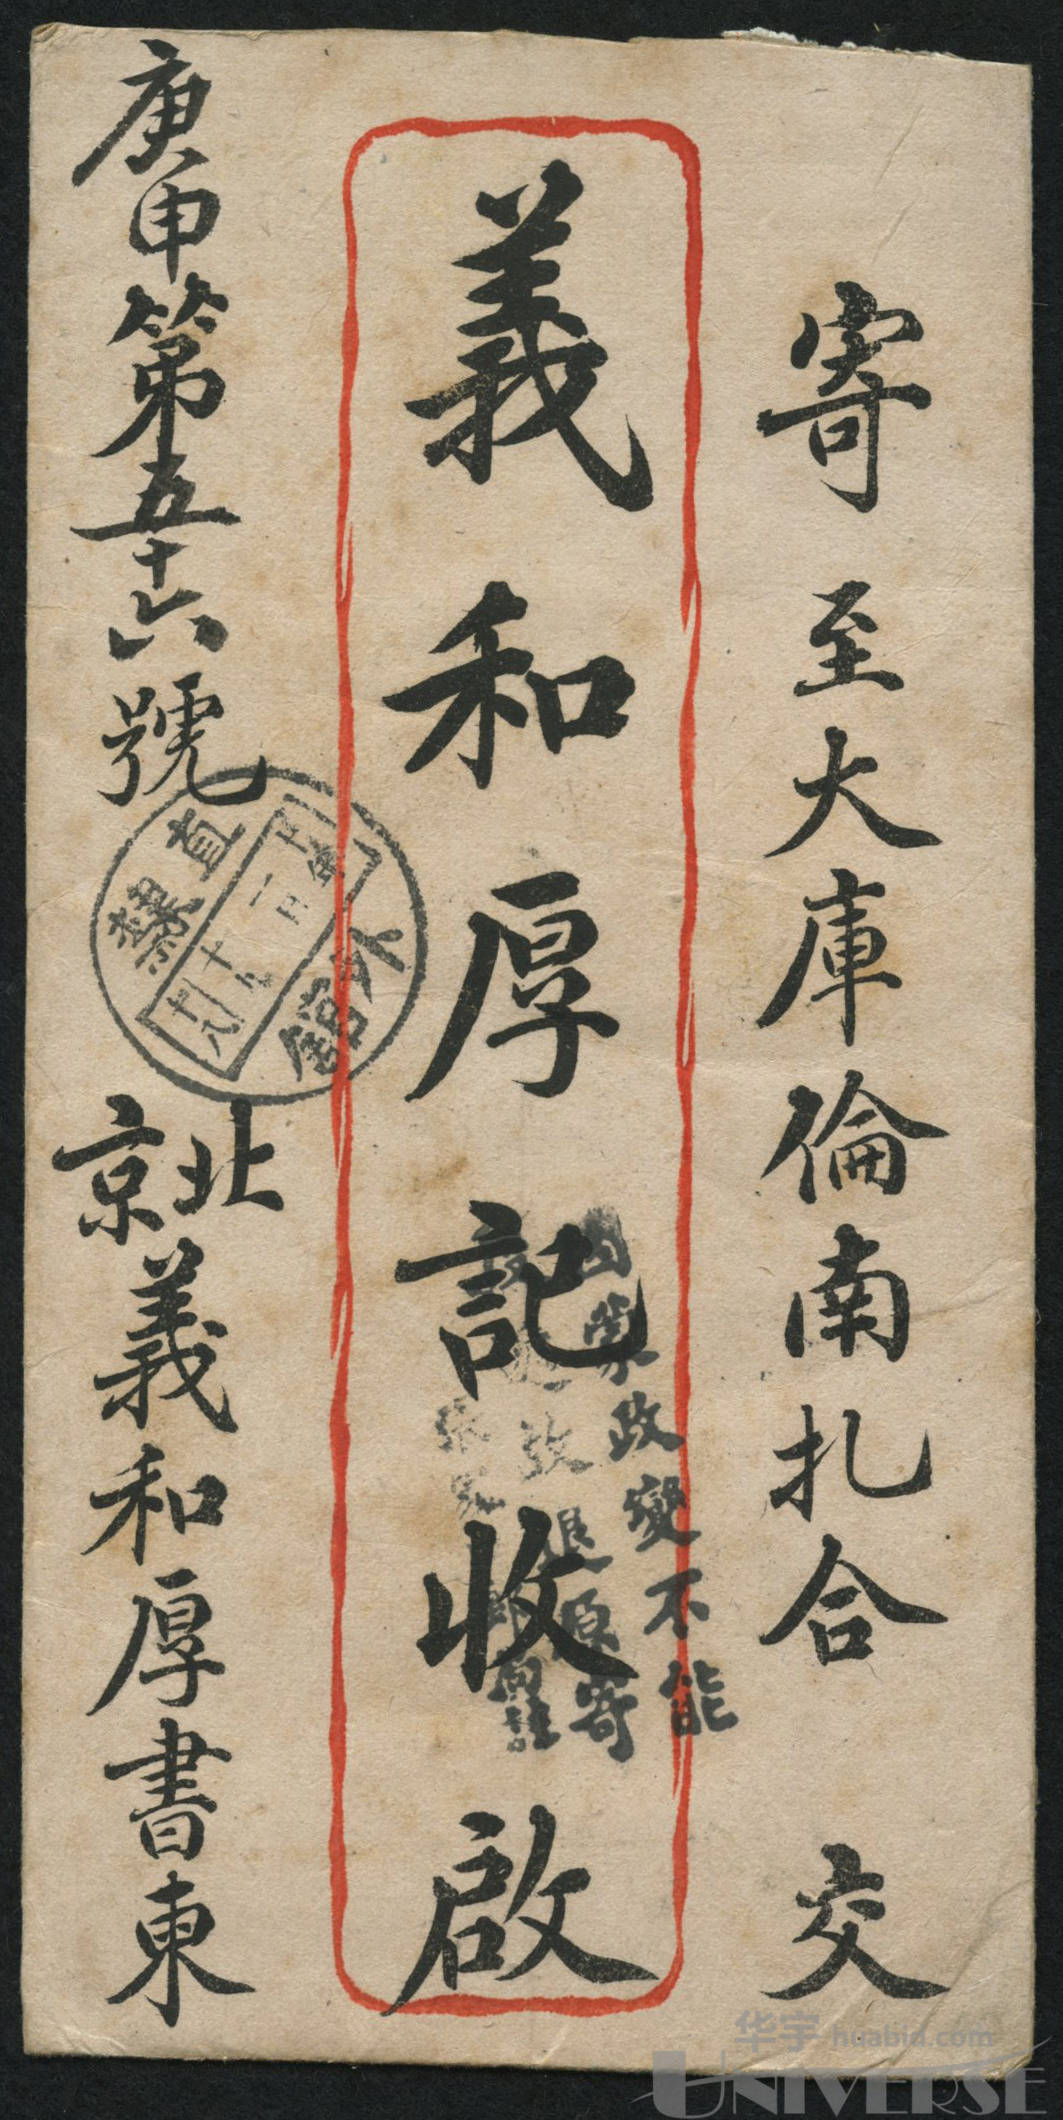 寄至大庫倫南扎合 交
義和厚記收啟
庚申第五十六號
北京義和厚書柬
直隸
外館
政變不能
退原寄
华宇 huabid.com
UNIVERSE